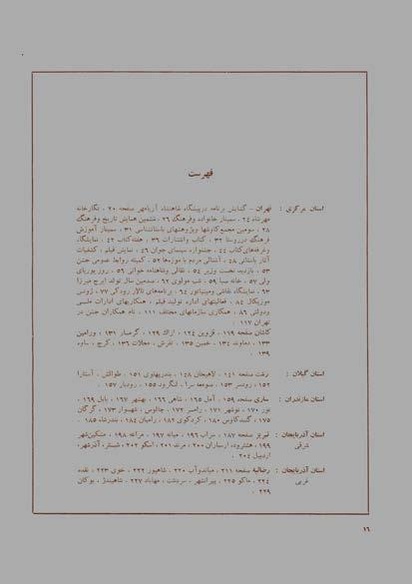 فهرست
استان مرکزی : تهران – گشایش برنامه درپیشگاه شاهنشاه آریامهر صفحه ۲۰ ، نگارخانه
مهرشاه ۲۴ ، سمینار خانواده وفرهنگ ۲۶ ، ششمین همایش تاریخ وفرهنگ
۲۸ ، سومین مجمع کاوشها وپژوهشهای باستانشناسی ۳۱ ، سمینار آموزش
فرهنگ درروستا ۳۲ ، کتاب وانتشارات ۳۹ ، هفته کتاب ۴۲ ، نمایشگاه
وغرفه‌های کتاب ۴۴ ، جشنواره سینمای جوان ۴۶ ، نمایش فیلم ، کشفیات
آثار باستانی ۴۸ ، آشنائی مردم با موزه‌ها ۵۲ ، کمیته روابط عمومی جشن
۵۳ ، بازدید نخست وزیر ۵۴ ، نقالی وشاهنامه خوانی ۵۶ ، روز پوریای
ولی ۵۷ ، خانه صبا ۵۹ ، شب مولوی ۶۲ ، صدمین سال تولد ایرج میرزا
۶۳ ، نمایشگاه نقاشی ومینیاتور ۶۴ ، برنامه‌های تالار رودکی ۷۷ ،
موزیکال ۸۴ ، فعالیتهای اداره تولید فیلم ، همکاریهای ادارات ملی
ودولتی ۸۶ ، همکاری سازمانهای مختلف ۱۱۱ ، نام همکاران جشن در
تهران ۱۱۷ :
کاشان صفحه ۱۱۹ ، قزوین ۱۲۴ ، اراک ۱۲۹ ، گرمسار ۱۳۱ ، ورامین
۱۳۳ ، دماوند ۱۳۴ ، خمین ۱۳۵ ، تفرش ، محلات ۱۳۶ ، کرج ، ساوه
۱۳۹ .
استان گیلان : رشت صفحه ۱۴۱ ، لاهیجان ۱۴۸ ، بندرپهلوی ۱۵۱ ، طوالش ، آستارا
۱۵۲ ، رودسر ۱۵۳ ، صومعه سرا ، لنگرود ۱۵۵ ، رودبار ۱۵۷ .
استان مازندران : ساری صفحه ۱۵۹ ، آمل ۱۶۵ ، شاهی ۱۶۶ ، بهشهر ۱۶۷ ، بابل ۱۶۹ ،
نور ۱۷۰ ، نوشهر ۱۷۱ ، رامسر ۱۷۲ ، چالوس ، شهسوار ۱۷۳ ، گرگان
۱۷۵ ، گنبدکاوس ۱۸۰ ، کردکوی ۱۸۲ ، رامیان ۱۸۴ ، بندرشاه ۱۸۵ .
استان آذربایجان شرقی : تبریز صفحه ۱۸۷ ، سراب ۱۹۶ ، میانه ۱۹۷ ، مراغه ۱۹۸ ، مشکین‌شهر
۱۹۹ ، هشترود، ارسباران ۲۰۰ ، مرند ۲۰۱ ، اسکو ۲۰۲ ، شبستر، آذرشهر،
اردبیل ۲۰۴ .
استان آذربایجان غربی : رضائیه صفحه ۲۱۱ ، میاندوآب ۲۲۰ ، شاهپور ۲۲۲ ، خوی ۲۲۳ ، نقده
۲۲۴ ، ماکو ۲۲۵ ، پیرانشهر ، سردشت ، مهاباد ۲۲۷ ، شاهیندژ ، بوکان
۲۲۹ .
۱۶